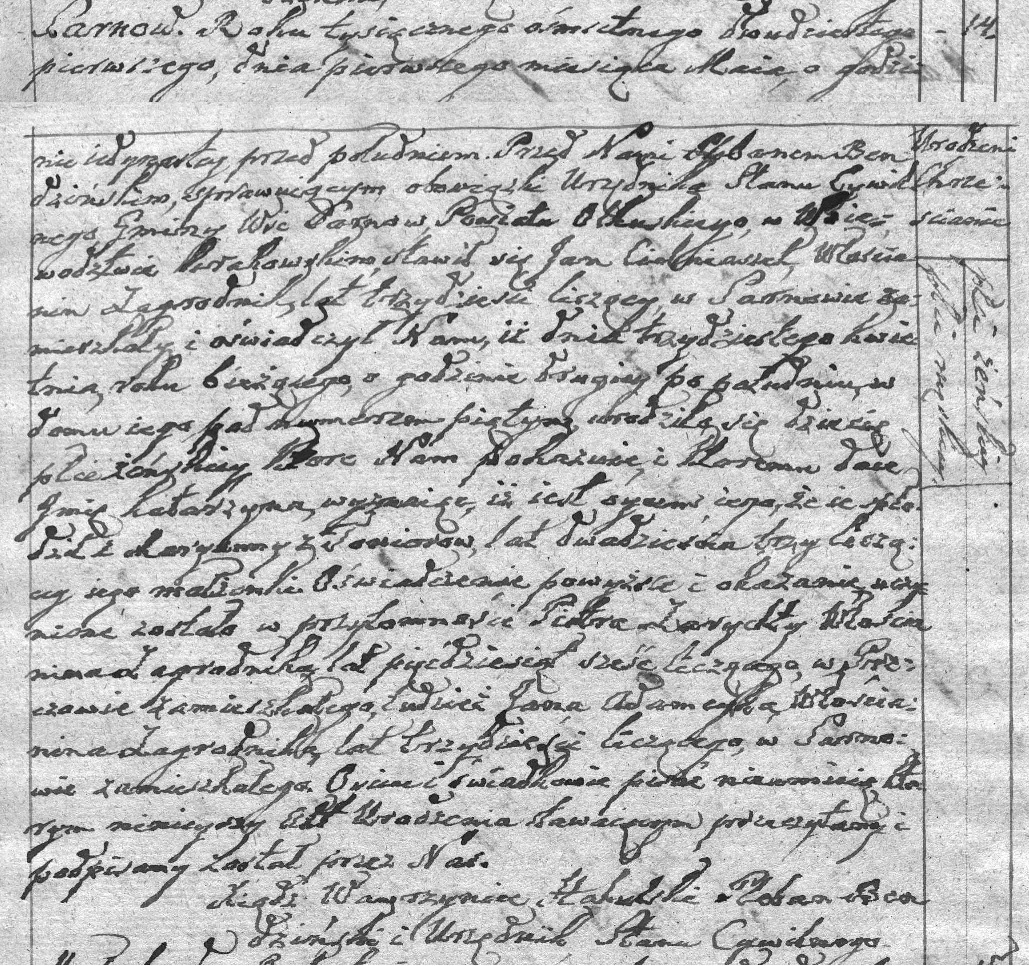 Sarnow. Roku tysiącznego ośmsetnego dwudziestego - 14.
pierwszego, dnia pierwszego miesiąca Maia, o godzi
nie iedynastey przed południem. Przed Nami Plebanem Ben
dzińskim, sprawuiącym obowiązki Urzędnika Stanu Cywil
nego Gminy Wsi Sarnow, Powiatu Olkuskiego, w Woie:
wodztwie Krakowskim, stawił się Jan Włościa
nin Zagrodnik, lat trzydzieści liczący, w Sarnowie za:
mieszkały, i oświadczył Nam, iż dnia trzydziestego kwie
tnia, roku bieżącego, o godzinie drugiey po południu, w
domu iego pod numerem piątym, urodziło się dziecię
płci żeńskiey, które Nam pokazuie, i któremu daie
Imię Katarzyna, wyznaiąc, iż iest oycem iego, że ie spło:
dził z Maryanny z lat dwadzieścia trzy liczą:
cy iego małżonki. Oświadczenie powyższe i okazanie uczy
nione zostało w przytomności Piotra Zarychty Włościa
nina Zagrodnika, lat pięćdziesiąt sześć liczącego, w
zamieszkałego, tudzież Jana Adamczyka, Włościa:
nina Zagrodnika, lat trzydzieści liczącego, w Sarno:
wie zamieszkałego. Ociec i świadkowie pisać nieumieią, któ
rym ninieyszy Akt Urodzenia stawaiącym przeczytany i
podpisany został przez Nas.
Xiądz Wawrzyniec Pleban Ben
dziński i Urzędnik Stanu Cywilnego
Urodzeni
Chrze:
ścianie
płci męskiey.
płci żeńskiey